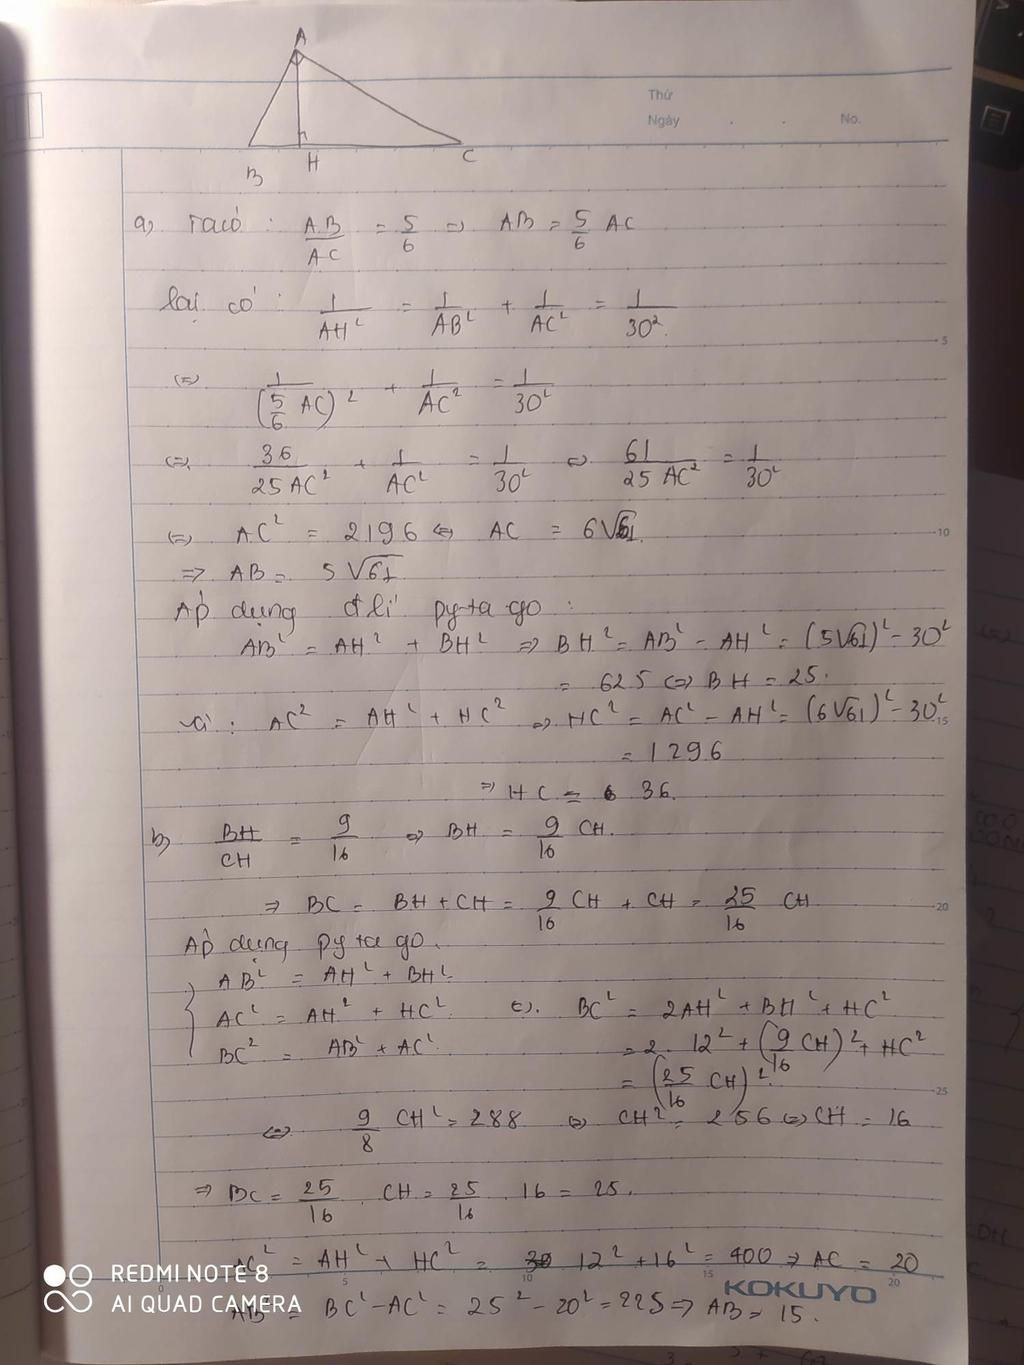 A
B H C
Thứ
Ngày . . No.
a) Ta có : AB/AC = 5/6 => AB = 5/6 AC
lại có : 1/AH² = 1/AB² + 1/AC² = 1/30²
(=) 1/(5/6 AC)² + 1/AC² = 1/30²
(=) 36/25AC² + 1/AC² = 1/30² <=> 61/25 AC² = 1/30²
(=) AC² = 2196 <=> AC = 6√61
=> AB = 5√61
Áp dụng đ lí py-ta go :
AB² = AH² + BH² => BH² = AB² - AH² = (5√61)² - 30²
= 625 <=> BH = 25.
AC² = AH² + HC² => HC² = AC² - AH² = (6√61)² - 30²
= 1296
=> HC = 36.
b) BH/CH = 9/16 => BH = 9/16 CH.
=> BC = BH + CH = 9/16 CH + CH = 25/16 CH
Áp dụng py ta go.
AB² = AH² + BH²
AC² = AH² + HC² (=). BC² = 2AH² + BH² + HC²
BC² = AB² + AC² = 2. 12² + (9/16 CH)² + HC²
= (25/16 CH)²
<=> 9/8 CH² = 288 <=> CH² = 256 <=> CH = 16
=> BC = 25/16 . CH = 25/16 . 16 = 25.
AC² = AH² + HC² = 12² + 16² = 400 => AC = 20
AB² = BC² - AC² = 25² - 20² = 225 => AB = 15.
5
10
15
20
25
0 5 10 15 20
KOKUYO
REDMI NOTE 8
AI QUAD CAMERA